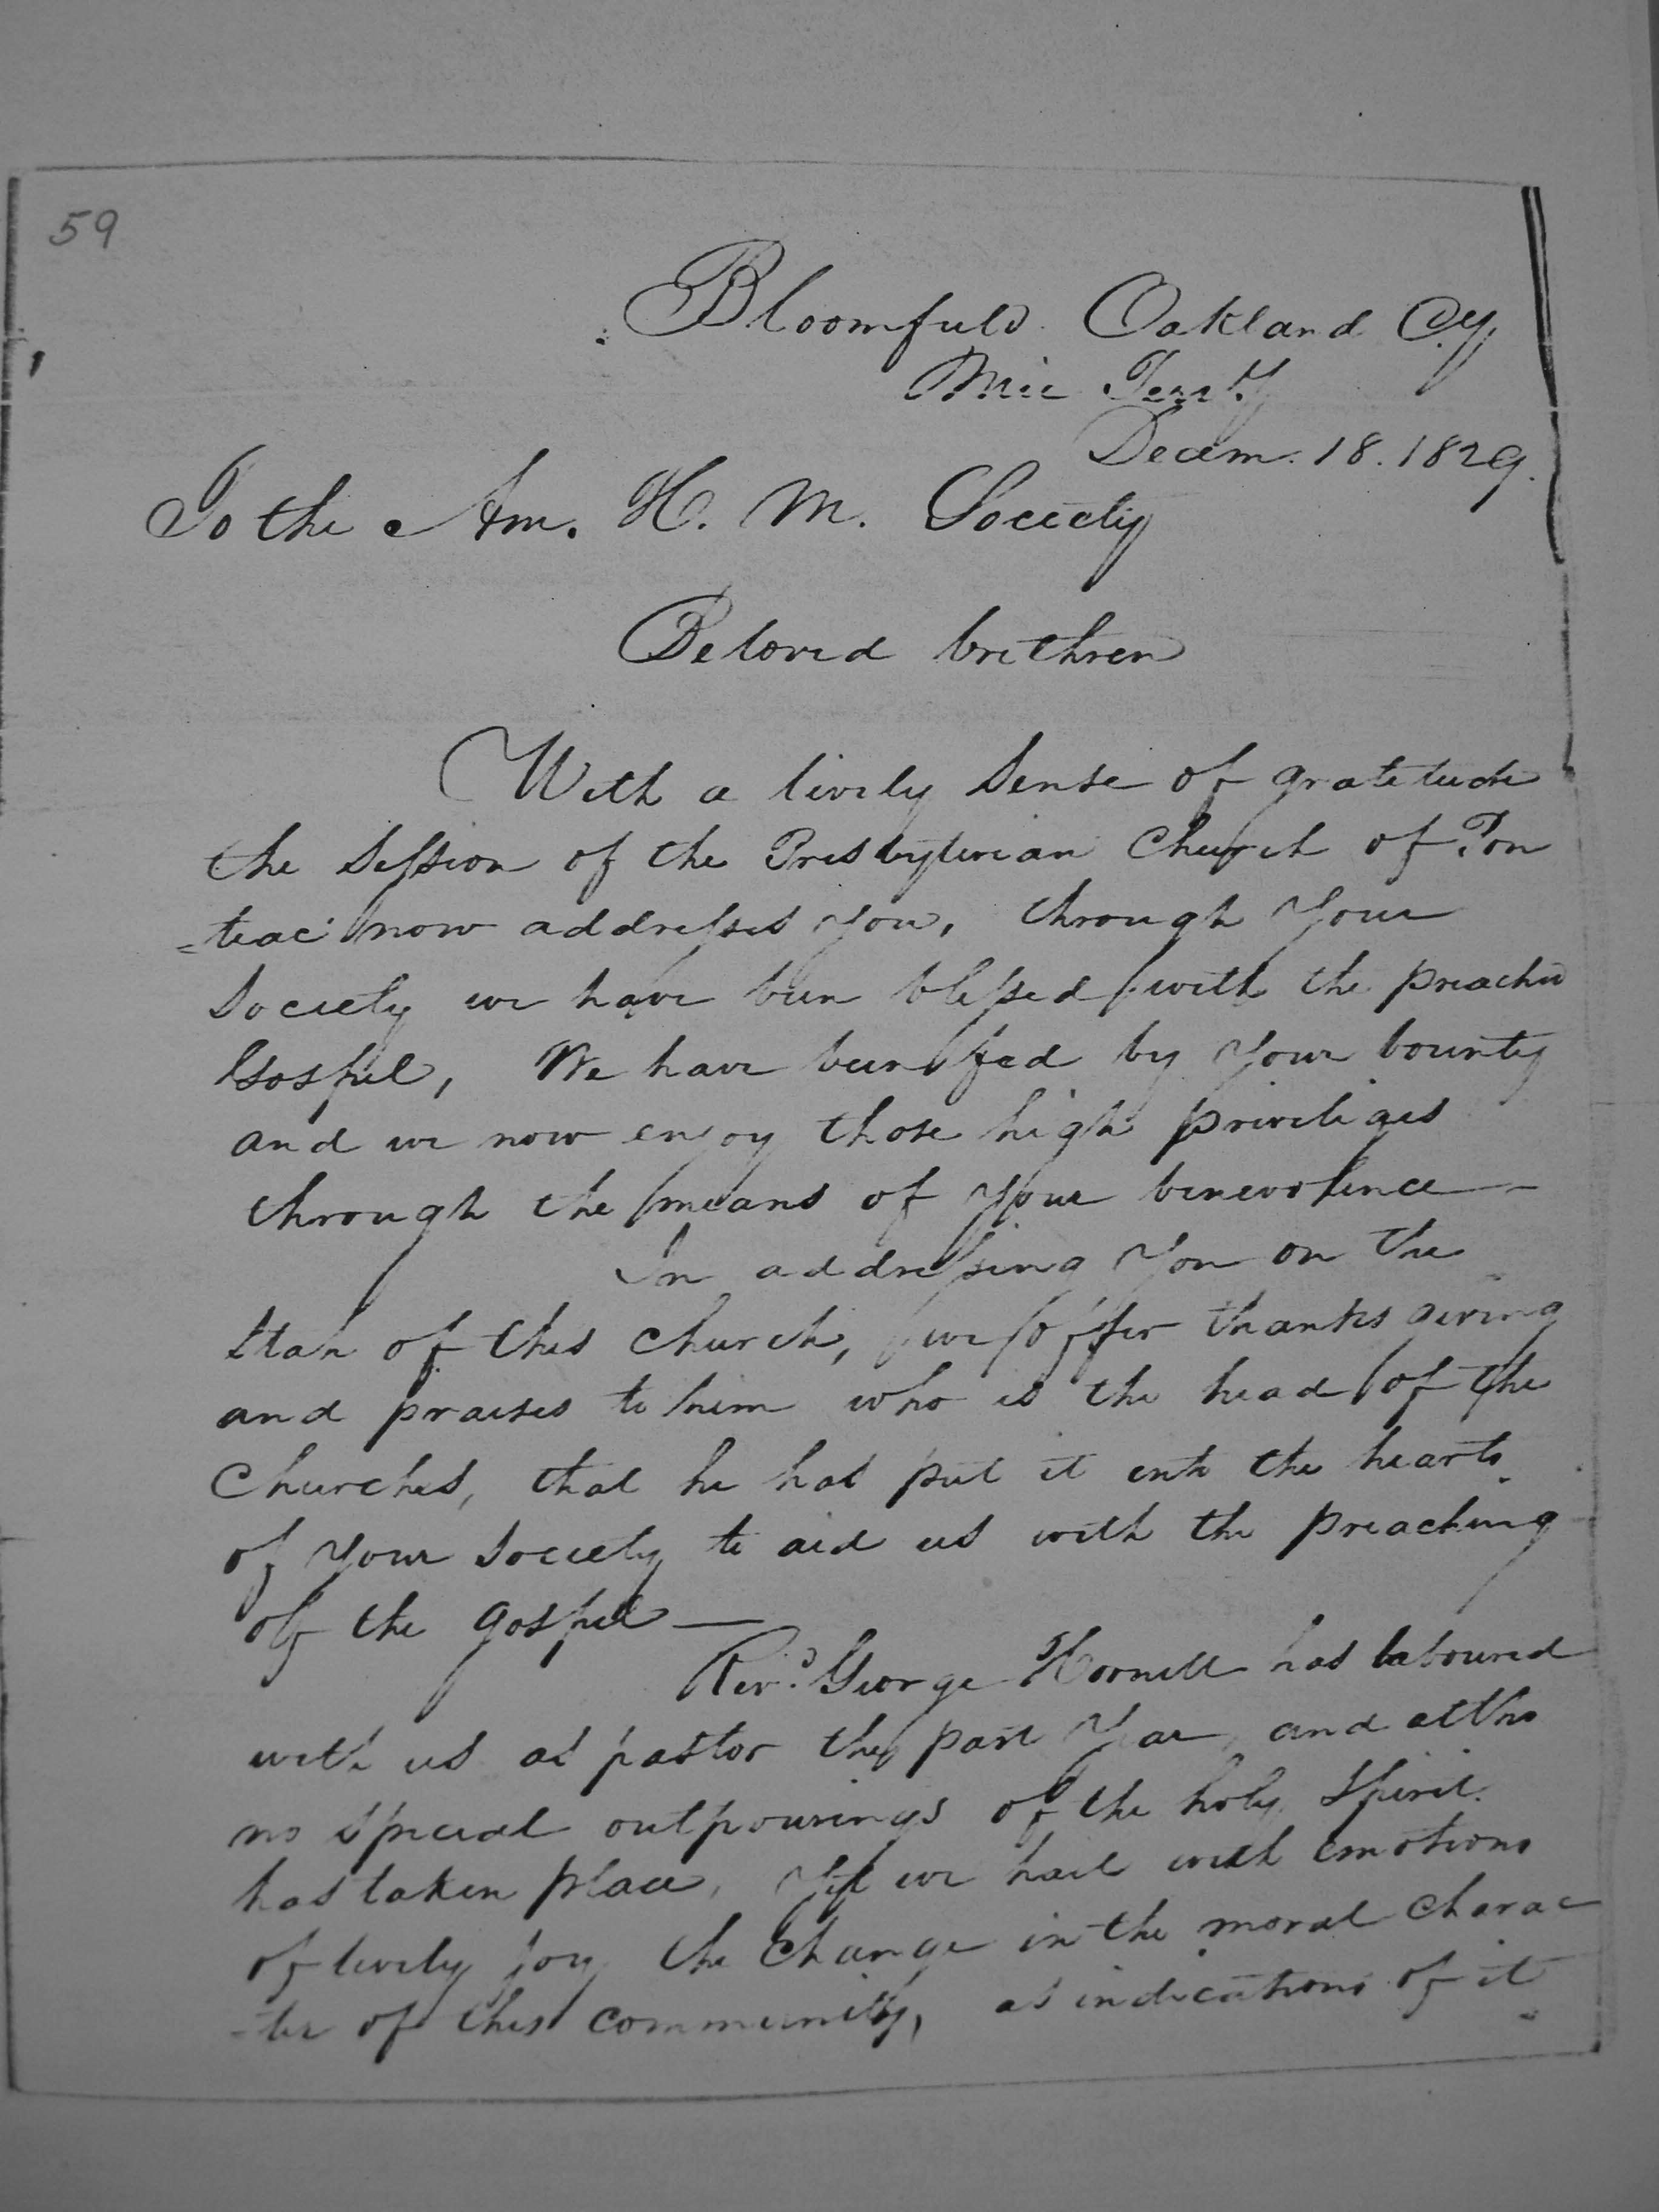 59
Bloomfield Oakland Cy
Mic Terrty
Decem. 18. 1829.
To the Am. H. M. Society
Beloved brethren
With a lively Sense of gratitude
the Session of the Presbyterian Church of Pon
=teac now addresses you, through Your
Society we have been blessed with the preachd
Gospel, We have been fed by Your bounty
and we now enjoy those high priveliges
through the means of Your benevolence—
In addressing You on the
State of this church, we offer thanks giving
and praises to him who is the head of the
Churches, that he has put it into the hearts
of Your Society to aid us with the preaching
of the gospel—
Revd. George Hornell has laboured
with us as pastor the past Year, and altho
no special outpourings of the holy Spirit
has taken place, Yet we hail with emotions
of lively joy the Change in the moral charac
-ter of this community, as indications of it